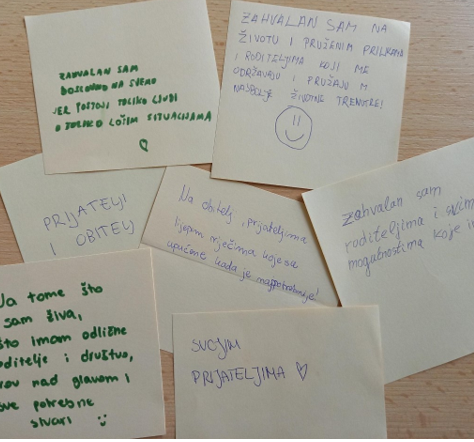 ZAHVALAN SAM
DOSLOVNO NA SVEMU
JER POSTOJI TOLIKO LJUDI
U TOLIKO LOŠIM SITUACIJAMA
ZAHVALAN SAM NA
ŽIVOTU I PRUŽENIM PRILIKAMA
I RODITELJIMA KOJI ME
ODRŽAVAJU I PRUŽAJU M
NAJBOLJE ŽIVOTNE TRENUTKE!
PRIJATELJI
I OBITELJ
Na obitelj, prijateljima
lijepim riječima koje sa
upućene kada je najpotrebnije!
zahvalan sam
roditeljima i svim
mogućnostima koje im
Na tome što
sam živa,
što imam odlične
roditelje i društvo,
krov nad glavom i
sve potrebne
stvari
SVOJIM
PRIJATELJIMA